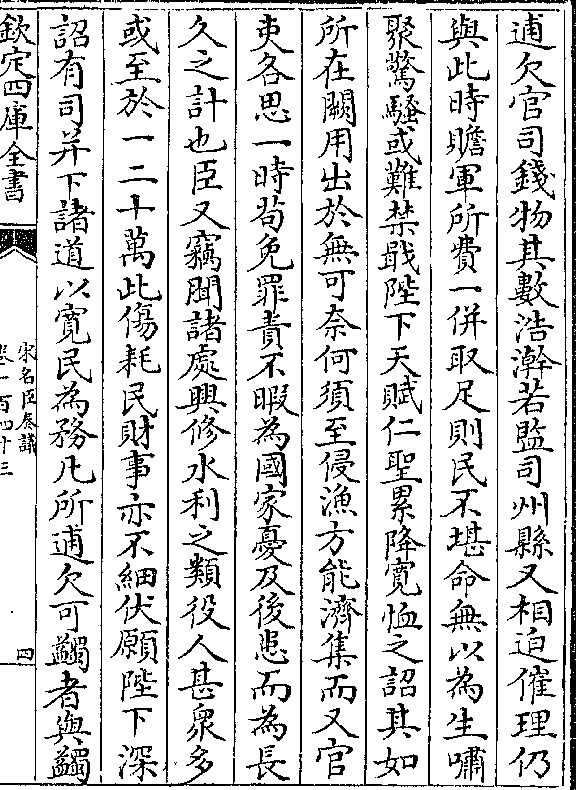 逋欠官司錢物其數浩瀚若監司州縣又相迫催理仍
與此時贍軍所費一併取足則民不堪命無以為生嘯
聚驚騷或難禁戢陛下天賦仁聖累降寛恤之詔其如
所在闕用出於無可奈何須至侵漁方能濟集而又官
吏各思一時茍免罪責不暇為國家憂及後患而為長
久之計也臣又竊聞諸處興修水利之類役人甚衆多
或至於一二十萬此傷耗民財事亦不細伏願陛下深
詔有司并下諸道以寛民為務凡所逋欠可蠲者與蠲
欽定四庫全書
宋名臣奏議
卷一百四十三
四